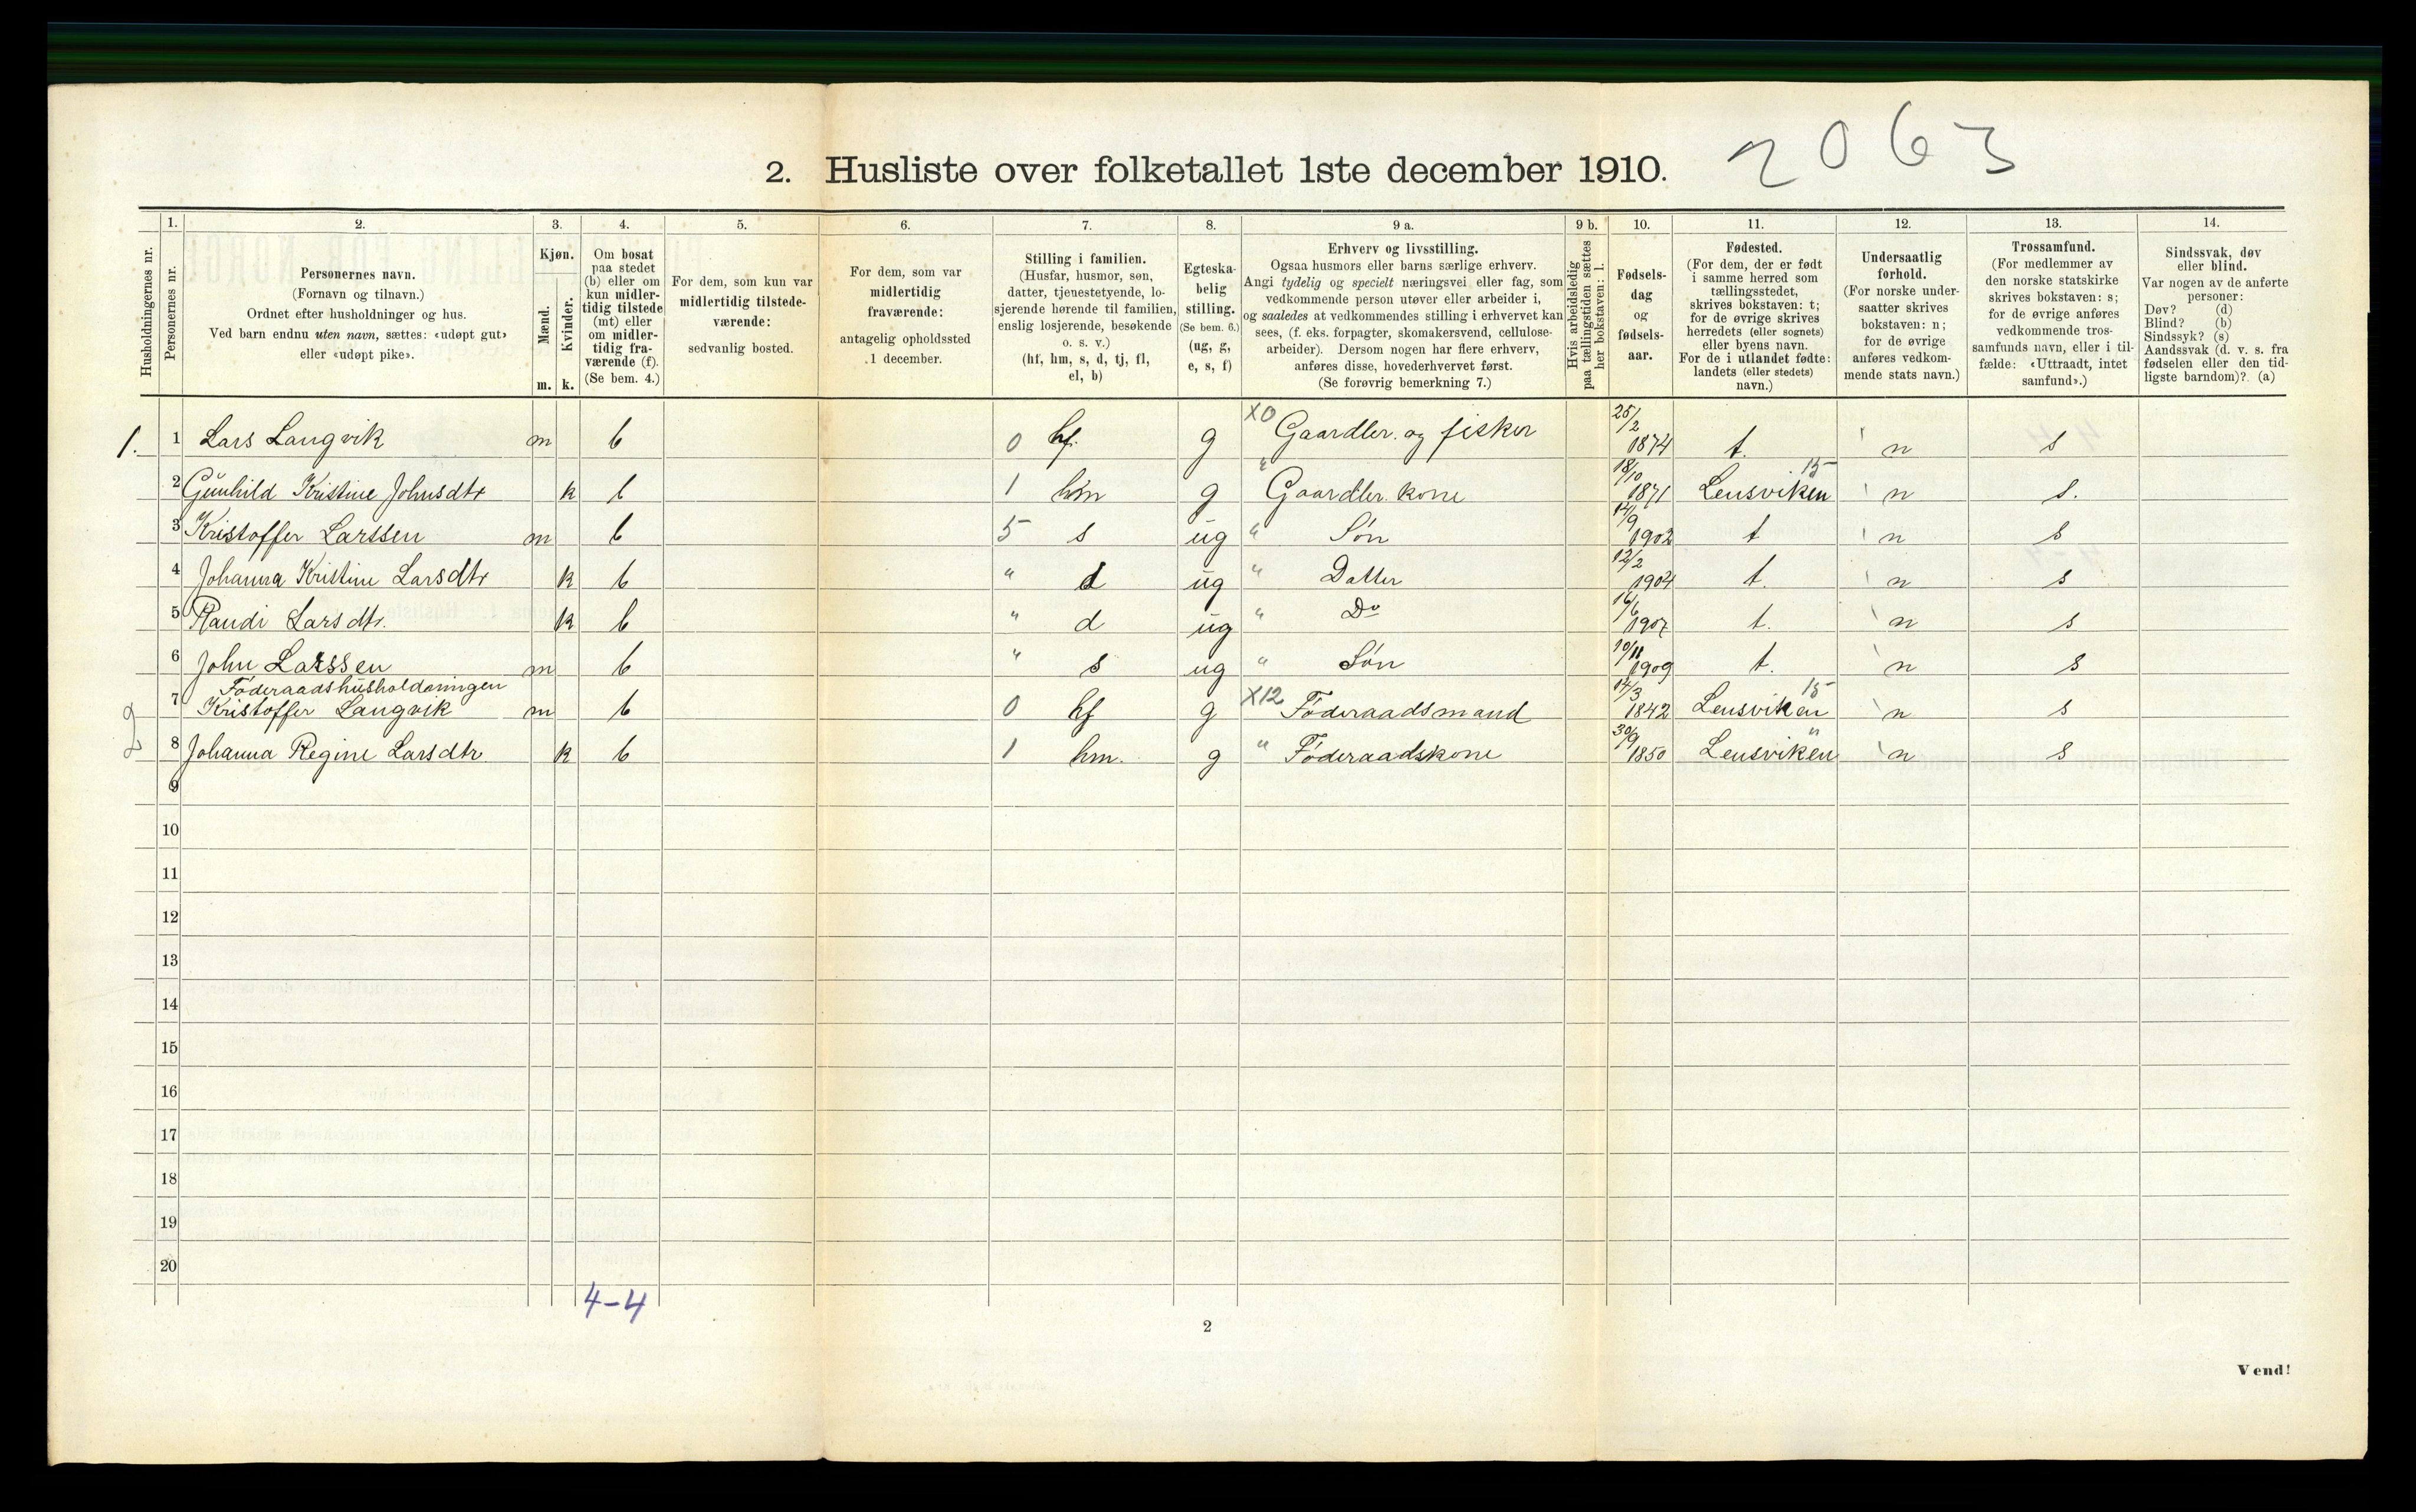 2. Husliste over folketallet 1ste december 1910. 2063
Husholdningernes nr.
1. Personernes nr.
2. Personernes navn.
(Fornavn og tilnavn.)
Ordnet efter husholdninger og hus.
Ved barn endnu uten navn, sættes: «udøpt gut»
eller «udøpt pike».
3. Kjøn.
Mænd. m.
Kvinder. k.
4. Om bosat
paa stedet
(b) eller om
kun midler-
tidig tilstede
(mt) eller
om midler-
tidig fra-
værende (f).
(Se bem. 4.)
5. For dem, som kun var
midlertidig tilstede-
værende:
sedvanlig bosted.
6. For dem, som var
midlertidig
fraværende:
antagelig opholdssted
1 december.
7. Stilling i familien.
(Husfar, husmor, søn,
datter, tjenestetyende, lo-
sjerende hørende til familien,
enslig losjerende, besøkende
o. s. v.)
(hf, hm, s, d, tj, fl,
el, b)
8. Egteska-
belig
stilling.
(Se bem. 6.)
(ug, g,
e, s, f)
9 a. Erhverv og livsstilling.
Ogsaa husmors eller barns særlige erhverv.
Angi tydelig og specielt næringsvei eller fag, som
vedkommende person utøver eller arbeider i,
og saaledes at vedkommendes stilling i erhvervet kan
sees, (f. eks. forpagter, skomakersvend, cellulose-
arbeider). Dersom nogen har flere erhverv,
anføres disse, hovederhvervet først.
(Se forøvrig bemerkning 7.)
9 b. Hvis arbeidsledig
paa tællingstiden sættes
her bokstaven: l.
10. Fødsels-
dag
og
fødsels-
aar.
11. Fødested.
(For dem, der er født
i samme herred som
tællingsstedet,
skrives bokstaven: t;
for de øvrige skrives
herredets (eller sognets)
eller byens navn.
For de i utlandet fødte:
landets (eller stedets)
navn.)
12. Undersaatlig
forhold.
(For norske under-
saatter skrives
bokstaven: n;
for de øvrige
anføres vedkom-
mende stats navn.)
13. Trossamfund.
(For medlemmer av
den norske statskirke
skrives bokstaven: s;
for de øvrige anføres
vedkommende tros-
samfunds navn, eller i til-
fælde: «Uttraadt, intet
samfund».)
14. Sindssvak, døv
eller blind.
Var nogen av de anførte
personer:
Døv? (d)
Blind? (b)
Sindssyk? (s)
Aandssvak (d. v. s. fra
fødselen eller den tid-
ligste barndom)? (a)
1. 1 Lars Langvik m b 0 hf. g X0 Gaardbr. og fisker 25/2 1874 t. n s
2 Gunhild Kristine Johnsdtr k b 1 hm g " Gaardbr. kone 18/10 1871 Lensviken 15 n s.
3 Kristoffer Larssen m b 5 s ug " Søn 14/9 1902 t n s
4 Johanna Kristine Larsdtr k b " d ug " Datter 12/2 1904 t. n s
5 Randi Larsdtr. k b " d ug " Do 16/6 1907 t. n s
6 John Larssen m b " s ug " Søn 10/11 1909 t. n s
Føderaadshusholdningen
2 7 Kristoffer Langvik m b 0 hf g X12 Føderaadsmand 14/3 1842 Lensviken 15 n s
8 Johanna Regine Larsdtr k b 1 hm. g " Føderaadskone 30/9 1850 Lensviken " n s
9
10
11
12
13
14
15
16
17
18
19
20
4-4
2
Vend!